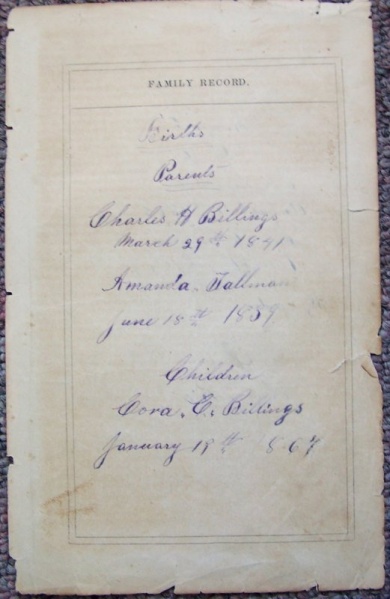 FAMILY RECORD.
Births
Parents
Charles H Billings
March 29th 1841
Amanda. Tallman
June 18th 1839
Children
Cora. E. Billings
January 18th 1867